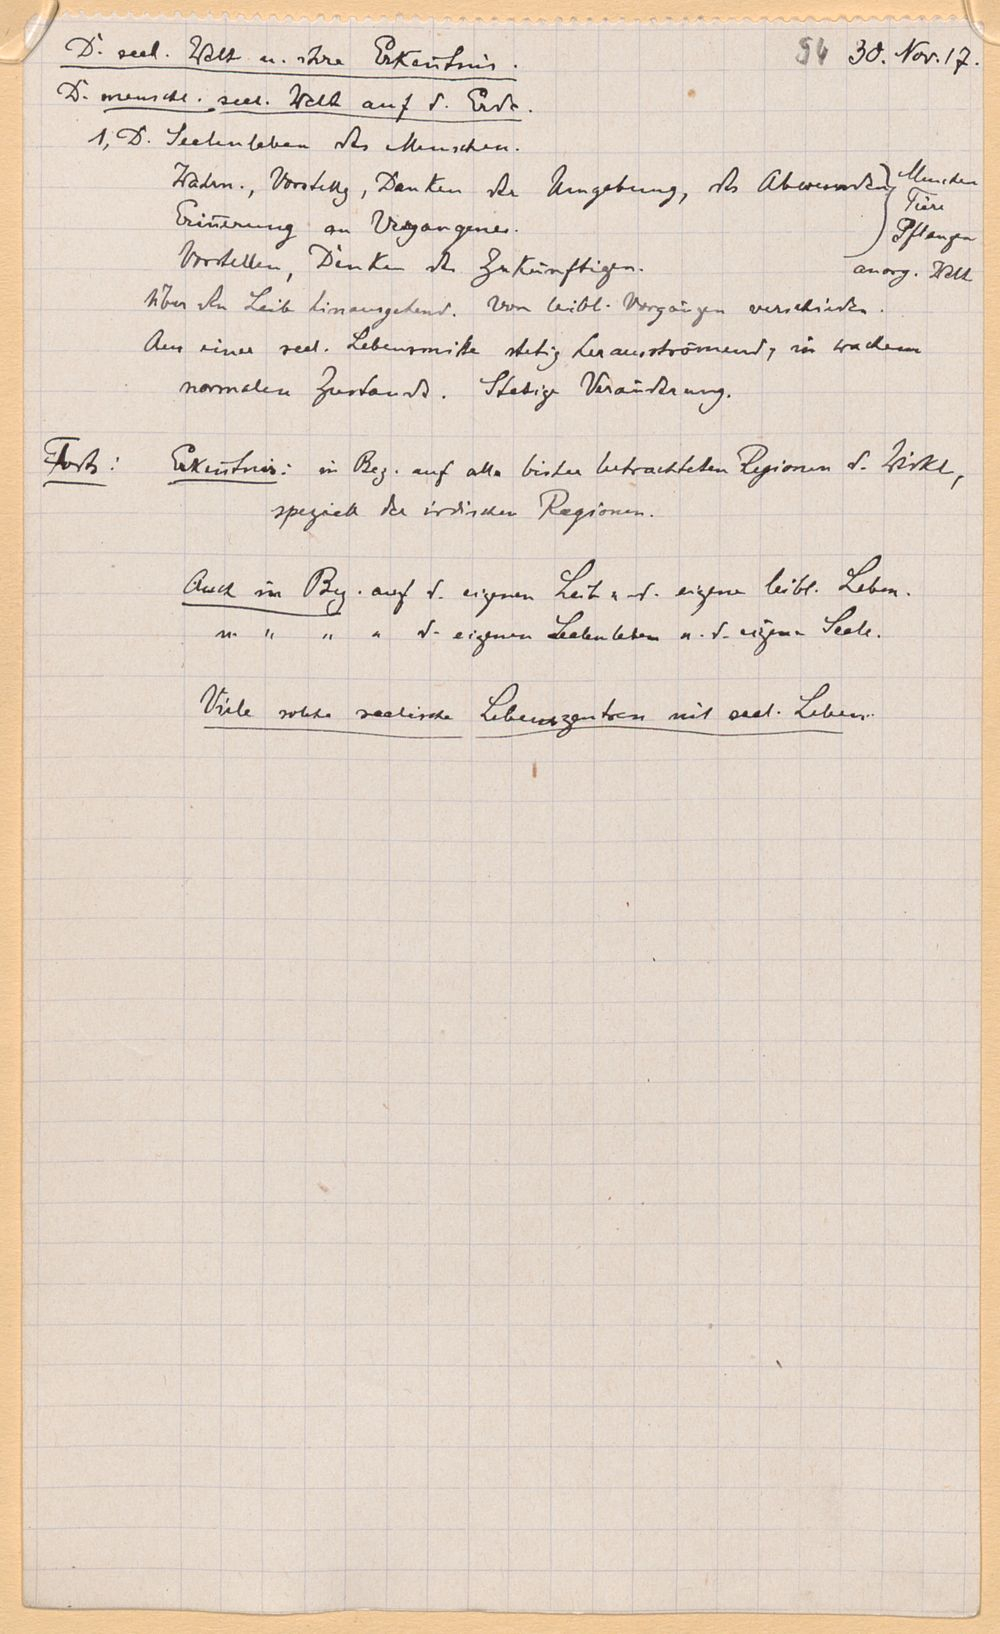 D. seel. Welt u. ihre Erkentnis. 54 30. Nov. 17.
D. menschl. seel. Welt auf d. Erde.
1, D. Seelenleben des Menschen.
Wahrn., Vorstellg, Denken der Umgebung, des Abwesenden } Menschen
Tiere
Erinerung an Vergangenes. Pflanzen
Vorstellen, Denken des Zukünftigen. anorg. Welt
Über den Leib hinausgehend. Von leibl. Vorgängen verschieden.
Aus einer seel. Lebensmitte stetig herausströmend, in wachem
normalen Zustande. Stetige Veränderung.
Forts: Erkentnis: in Bez. auf alle bisher betrachteten Regionen d. Wirkl,
speziell der irdischen Regionen.
Auch in Bez. auf d. eigenen Leib u. d. eigene leibl. Leben.
u. " " " d. eigenen Seelenleben u. d. eigene Seele.
Viele solche seelische Lebenszentren mit seel. Leben.